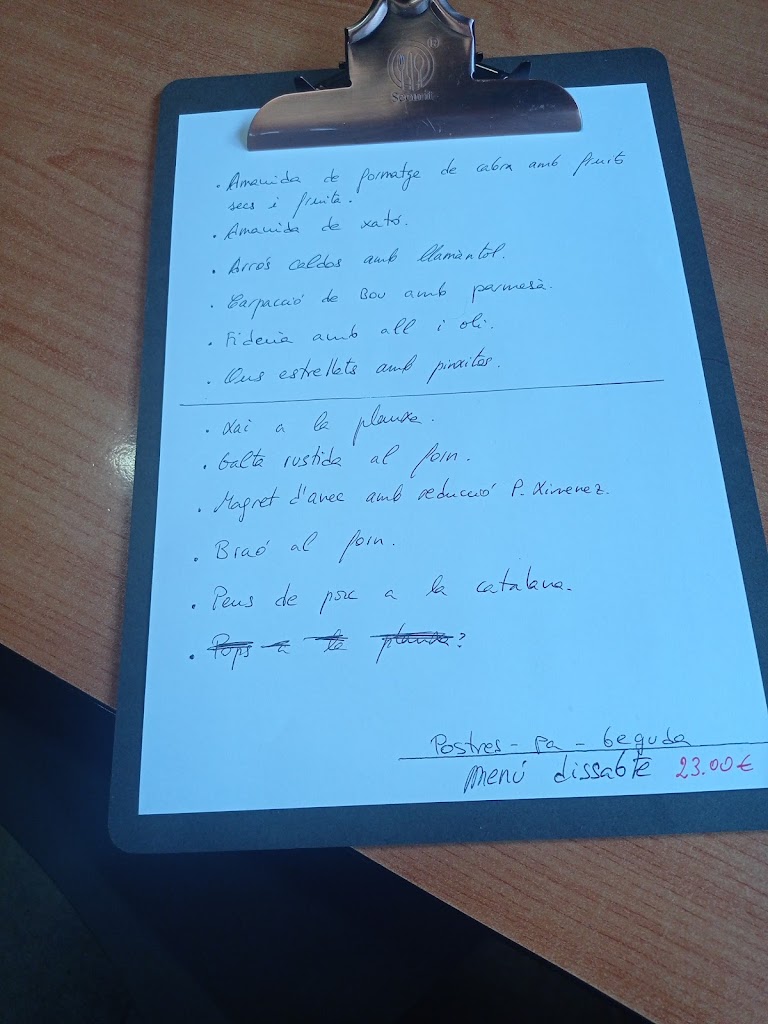 · Amanida de formatge de cabra amb fruits
secs i fruita.
· Amanida de xató.
· Arrós caldos amb llamàntol.
· Carpacció de Bou amb parmesà.
· Fideuà amb all i oli.
· Ous estrellats amb pinxitos.
· Xai a la planxa.
· Galta rustida al forn.
· Magret d'anec amb reducció P. Ximenez.
· Braó al forn.
· Peus de porc a la catalana.
· Pops a la planxa?
Postres - pa - beguda
menú dissabte 23.00€